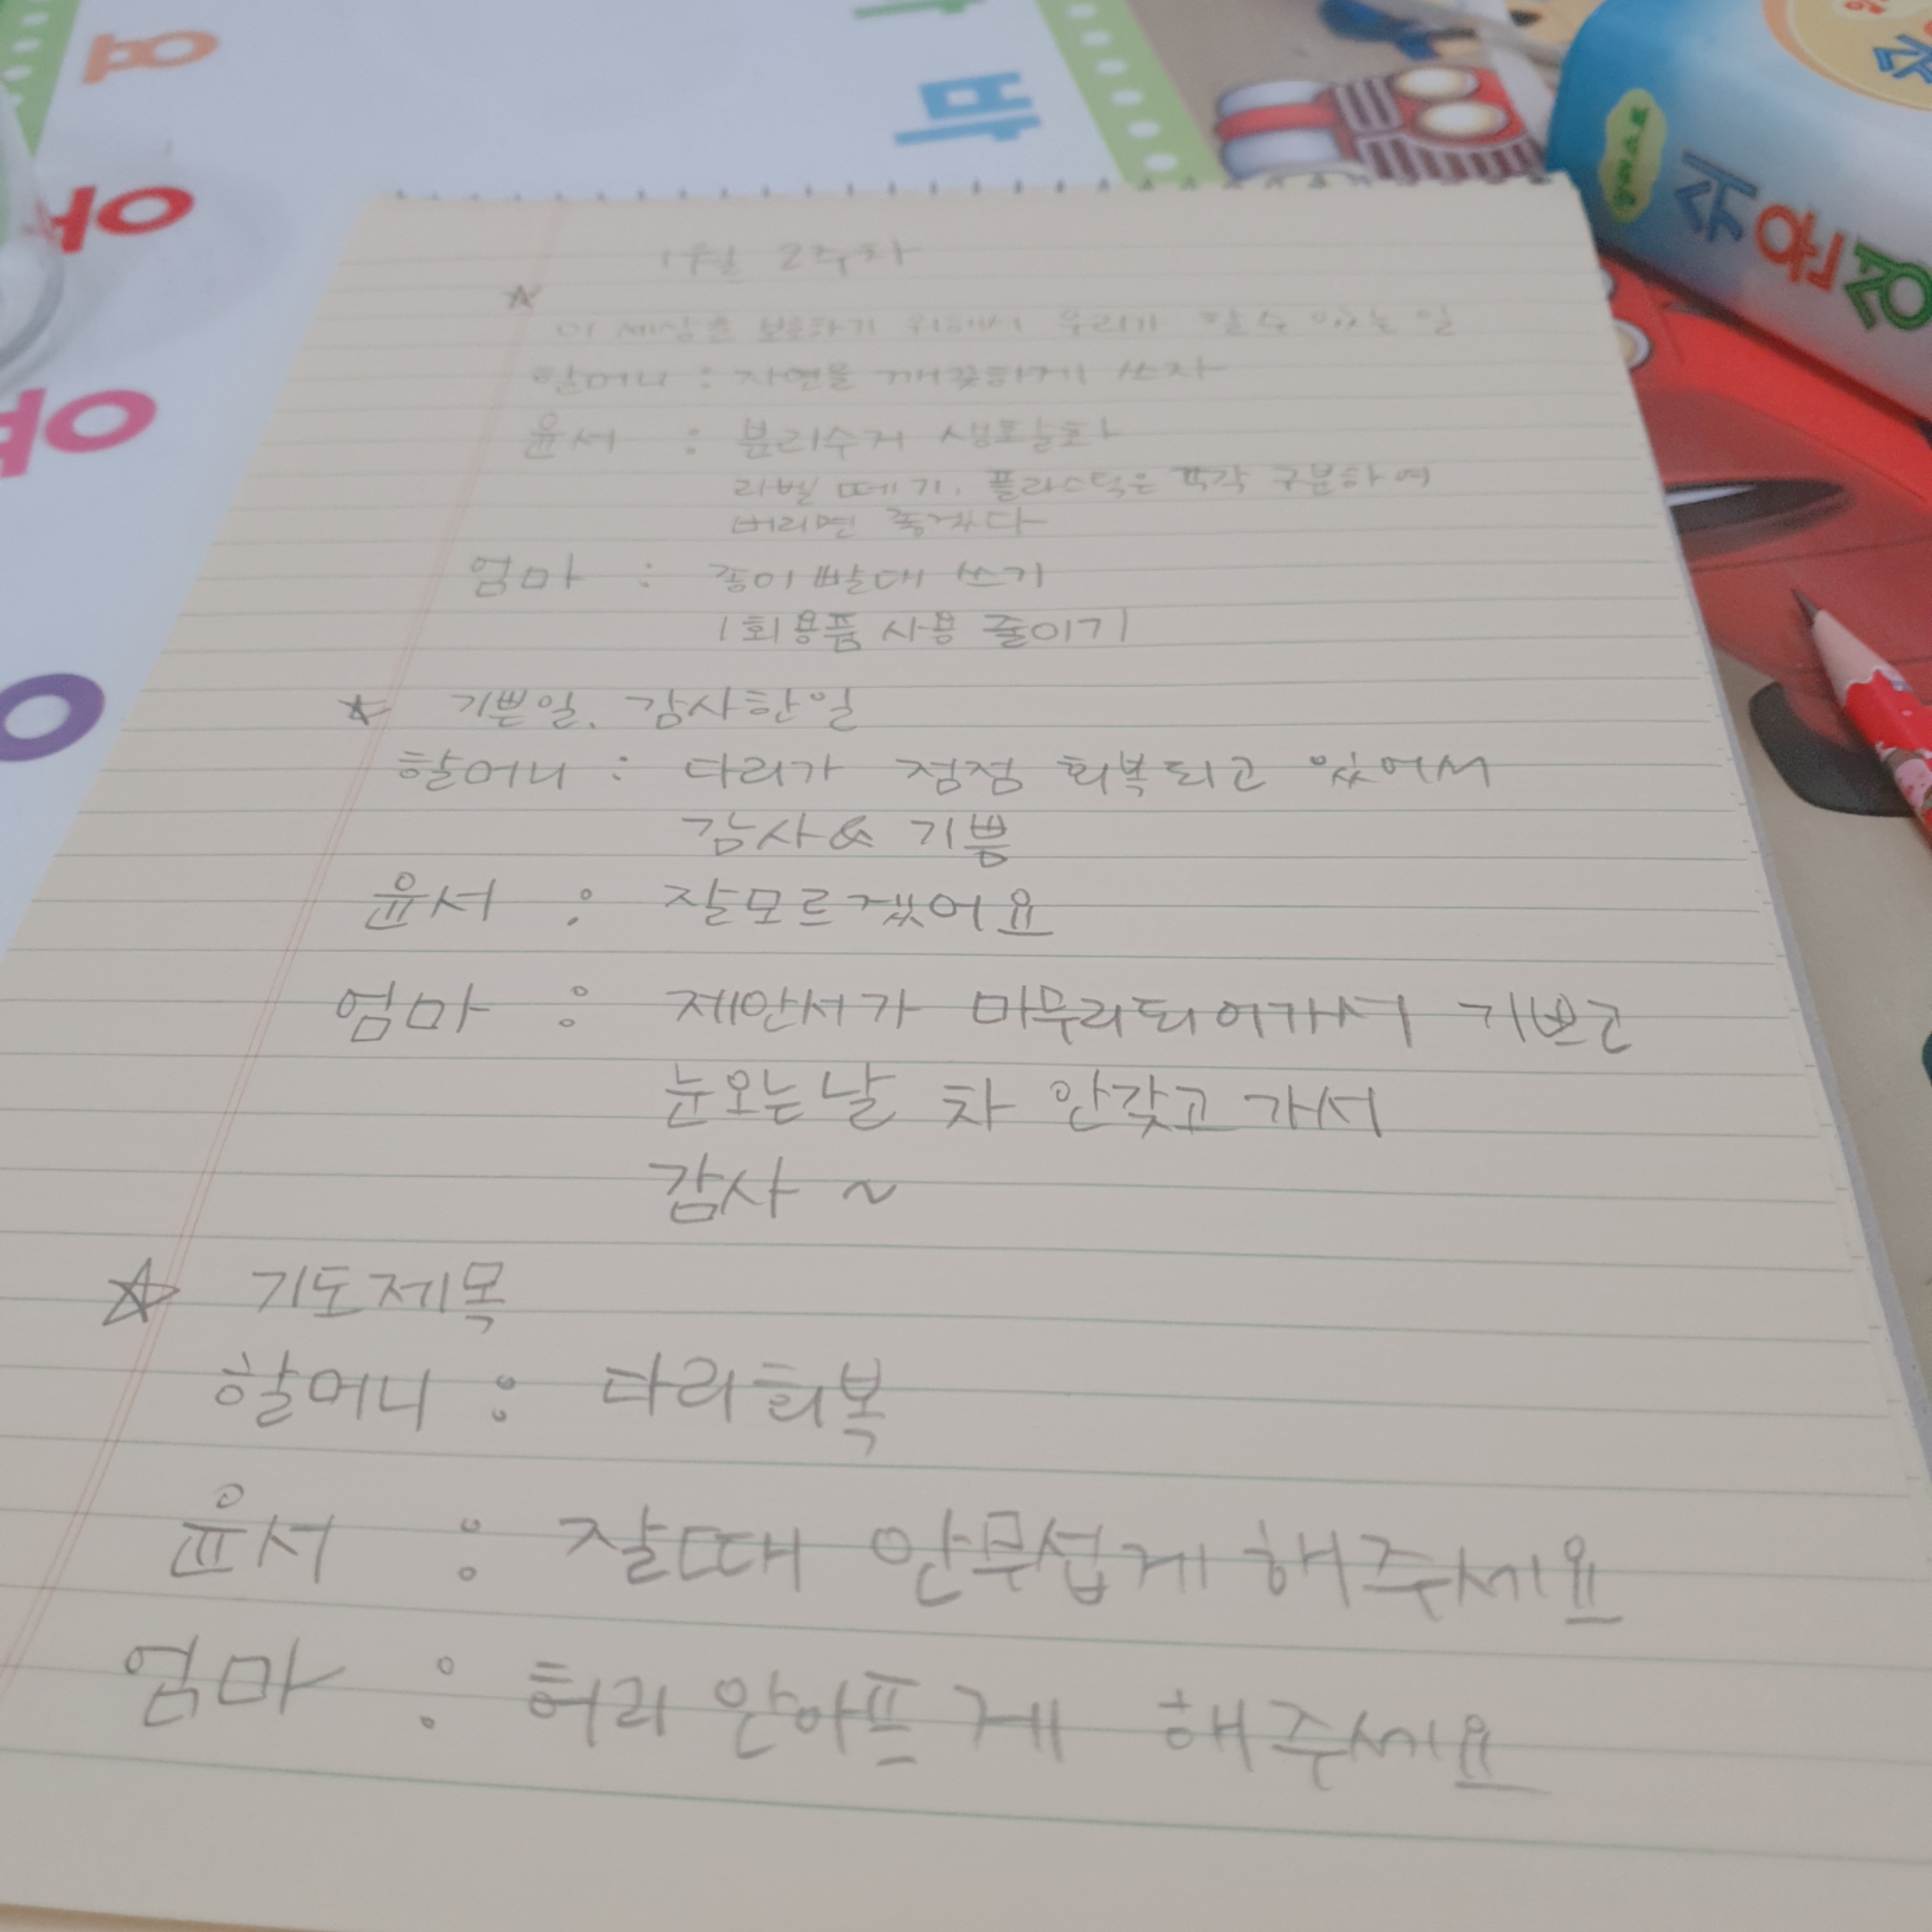 1월 2주차
이 세상을 보호하기 위해서 우리가 할 수 있는 일
할머니 : 자연을 깨끗하게 쓰자
윤서 : 분리수거 생활화
라벨 떼기, 플라스틱은 각각 구분하여
버리면 좋겠다
엄마 : 종이 빨대 쓰기
1회용품 사용 줄이기
기쁜일, 감사한일
할머니 : 다리가 점점 회복되고 있어서
감사& 기쁨
윤서 : 잘모르겠어요
엄마 : 제안서가 마무리되어가서 기쁘고
눈오는날 차 안갖고 가서
감사 ~
기도제목
할머니 : 다리회복
윤서 : 잘때 안무섭게 해주세요
엄마 : 허리 안아프게 해주세요
요
아
야
바
순한